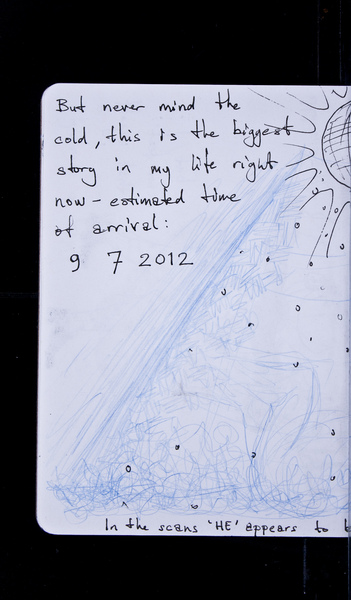 But never mind the
cold, this is the biggest
story in my life right
now - estimated time
of arrival:
9 7 2012
In the scans 'HE' appears to